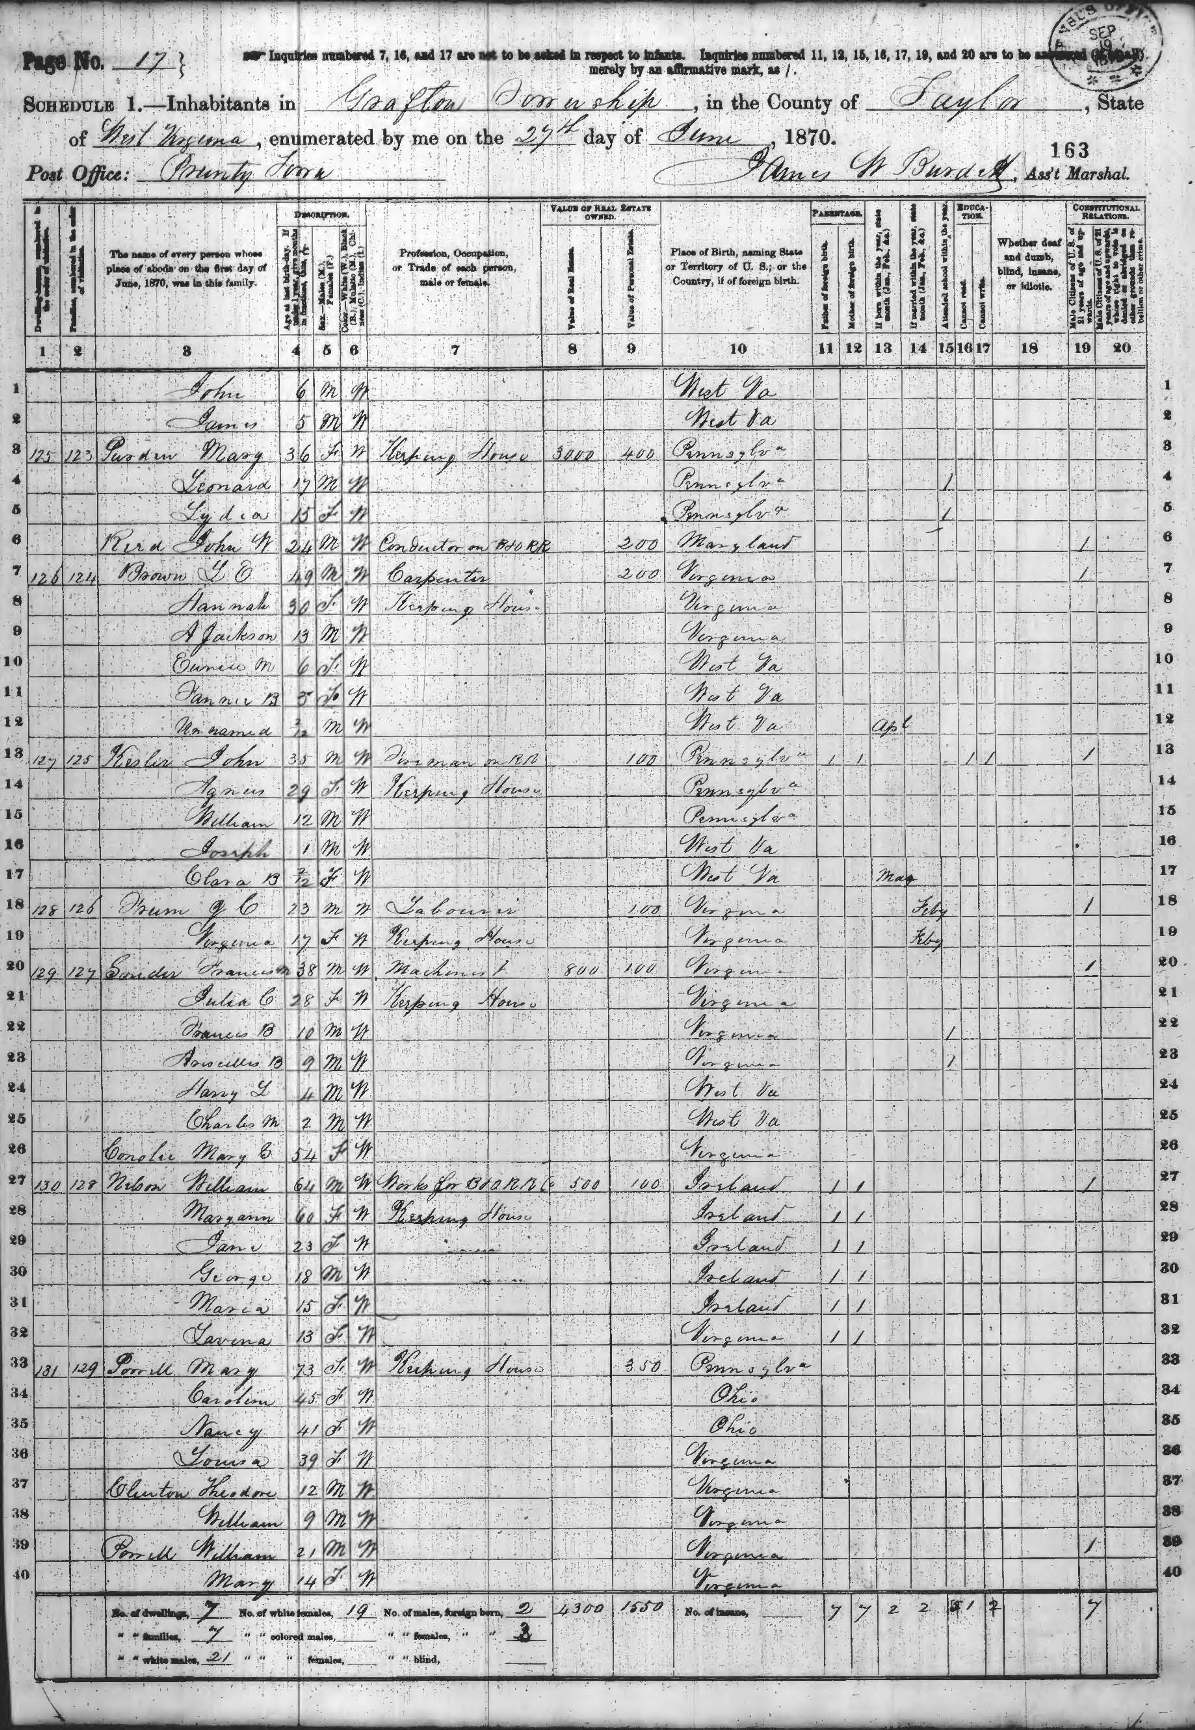 Page No. 17
Inquiries numbered 7, 16, and 17 are not to be asked in respect to infants. Inquiries numbered 11, 12, 15, 16, 17, 19, and 20 are to be answered (if at all)
merely by an affirmative mark, as /.
SCHEDULE 1.—Inhabitants in Grafton Township, in the County of Taylor, State
of West Virginia, enumerated by me on the 27th day of June, 1870.
163
Post Office: Prunty Town James W Burdett, Ass't Marshal.
DESCRIPTION. VALUE OF REAL ESTATE OWNED. PARENTAGE. EDUCATION. CONSTITUTIONAL RELATIONS.
The name of every person whose place of abode on the first day of June, 1870, was in this family.
Profession, Occupation, or Trade of each person, male or female.
Value of Real Estate.
Value of Personal Estate.
Place of Birth, naming State or Territory of U. S.; or the Country, if of foreign birth.
Father of foreign birth.
Mother of foreign birth.
If born within the year, state month (Jan., Feb., &c.)
If married within the year, state month (Jan., Feb., &c.)
Attended school within the year.
Cannot read.
Cannot write.
Whether deaf and dumb, blind, insane, or idiotic.
1 2 3 4 5 6 7 8 9 10 11 12 13 14 15 16 17 18 19 20
1 John 6 M W West Va 1
2 James 5 M W West Va 2
3 125 123 Purdin Mary 36 F W Keeping House 3000 400 Pennsylva 3
4 Leonard 17 M W Pennsylva / 4
5 Lydia 15 F W Pennsylva / 5
6 John W 24 M W Conductor on B&O RR 200 Maryland / 6
7 126 124 Brown L O 49 M W Carpenter 200 Virginia / 7
8 Hannah 30 F W Keeping House Virginia 8
9 A Jackson 13 M W Virginia 9
10 Eunice M 6 F W West Va 10
11 Fannie B 3 F W West Va 11
12 Unnamed 2/12 M W West Va Apl 12
13 127 125 Kesler John 35 M W Fireman on RR 100 Pennsylva / / / / / 13
14 Agnes 29 F W Keeping House Pennsylva 14
15 William 12 M W Pennsylva 15
16 Joseph 1 M W West Va 16
17 Clara B 2/12 F W West Va Mar 17
18 128 126 Frum G C 23 M W Labourer 100 Virginia Feby / 18
19 Virginia 17 F W Keeping House Virginia Feby 19
20 129 127 Souder Francis M 38 M W Machinest 800 100 Virginia / 20
21 Julia C 28 F W Keeping House Virginia 21
22 Francis B 10 M W Virginia / 22
23 B 9 M W Virginia / 23
24 Harry L 4 M W West Va 24
25 Charles M 2 M W West Va 25
26 Conolie Mary C 54 F W Virginia 26
27 130 128 Nelson William 64 M W Works for B&O RR Co 500 100 Ireland / / / 27
28 Margann 60 F W Keeping House Ireland / / 28
29 Jane 23 F W Ireland / / 29
30 George 18 M W Ireland / / 30
31 Maria 15 F W Ireland / / 31
32 Lavina 13 F W Virginia / / 32
33 131 129 Powell Mary 73 F W Keeping House 350 Pennsylva 33
34 Caroline 45 F W Ohio 34
35 Nancy 41 F W Ohio 35
36 Louisa 39 F W Virginia 36
37 Clinton Theodore 12 M W Virginia 37
38 William 9 M W Virginia 38
39 Powell William 21 M W Virginia / 39
40 Mary 14 F W Virginia 40
No. of dwellings, 7 No. of white females, 19 No. of males, foreign born, 2 4300 1550 No. of insane, 7 7 2 2 7
" " families, 7 " " colored males, " " females, " " 3
" " white males, 21 " " " females, " " blind,